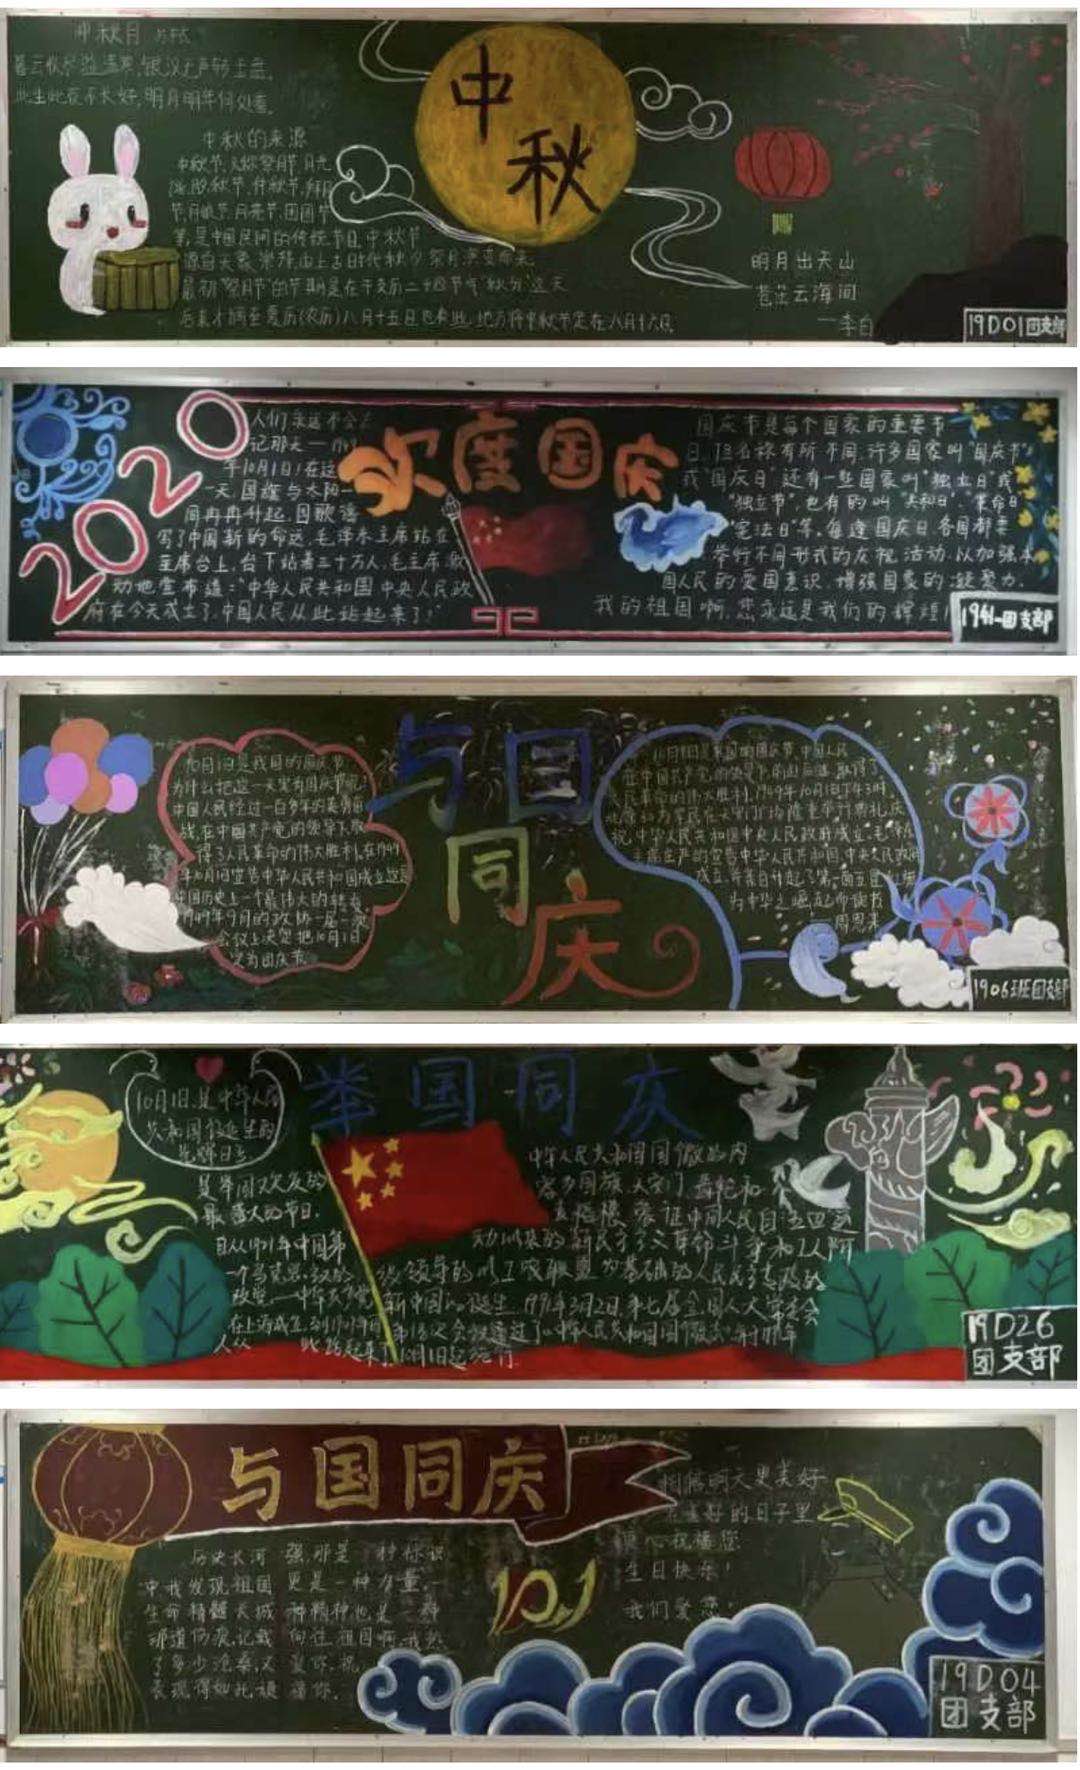 中秋月 苏轼
暮云收尽溢清寒,银汉无声转玉盘。
此生此夜不长好,明月明年何处看。
中秋的来源
中秋节又称祭月节、月光
节、月娘节、月亮节、团圆节
等,是中国民间的传统节日。中秋节
源自天象崇拜,由上古时代秋夕祭月演变而来。
最初"祭月节"的节期是在干支历二十四节气"秋分"这天
后来才调至夏历(农历)八月十五日,也有些地方将中秋节定在八月十六日。
中
秋
明月出天山
苍茫云海间
—李白
19D01团支部
2020
欢度国庆
人们永远不会忘
记那天—1949
年10月1日!在这
一天,国旗与太阳一
同冉冉升起,国歌谱
写了中国新的命运,毛泽东主席站在
主席台上,台下站着三十万人,毛主席激
动地宣布道:"中华人民共和国中央人民政
府在今天成立了,中国人民从此站起来了!"
国庆节是每个国家的重要节
日,但名称有所不同,许多国家叫"国庆节"
或"国庆日",还有一些国家叫"独立日"或
"独立节",也有的叫"共和日""革命日"
"宪法日"等。每逢国庆日各国都要
举行不同形式的庆祝活动,以加强本
国人民的爱国意识,增强国家的凝聚力。
我的祖国啊,您永远是我们的辉煌!
团支部
与国
同
庆
10月1日是我国的国庆节
为什么把这一天定为国庆节呢
中国人民经过一百多年的英勇奋
战,在中国共产党的领导下,取
得了人民革命的伟大胜利,在1949
年10月1日宣告中华人民共和国成立,这是
中国历史上一个最伟大的转变
1949年9月的政协一届一次
会议上决定把10月1日
定为国庆节
10月1日是我国的国庆节,中国人民
在中国共产党的领导下前赴后继,取得了
人民革命的伟大胜利,1949年10月1日下午3时
祝中华人民共和国中央人民政府成立,毛泽东
主席庄严的宣告中华人民共和国中央人民政府
为中华之崛起而读书
周恩来
1906班团支部
举国同庆
10月1日,是中华人民
共和国诞生的
光辉日子
是举国欢庆的
最盛大的节日.
自从1921年中国第
一个马克思
政党——中华共产党
在上海成立,到1949年
人从 此站起来了
中华人民共和国国徽的内
容为国旗、天安门、齿轮和
动以来的新民主主义革命斗争和工人阶
级领导的以工农联盟为基础的人民民主专政的
新中国的诞生。1991年3月2日,第七届全国人大常委会
第18次会议通过了《中华人民共和国国徽法》,并1991年
10月1日起施行
19D26
团支部
与国同庆
历史长河
中我发现祖国
生命精髓长城
那道伤痕,记载
了多少沧桑,又
表现得如此顽
强,那是一种标识
更是一种力量,一
种精神也是一种
向往,祖国啊,我热
爱你,祝
福你。
10.1
相信明天更美好
在美好的日子里
真心祝福您
生日快乐!
我们爱您!
19D04
团支部